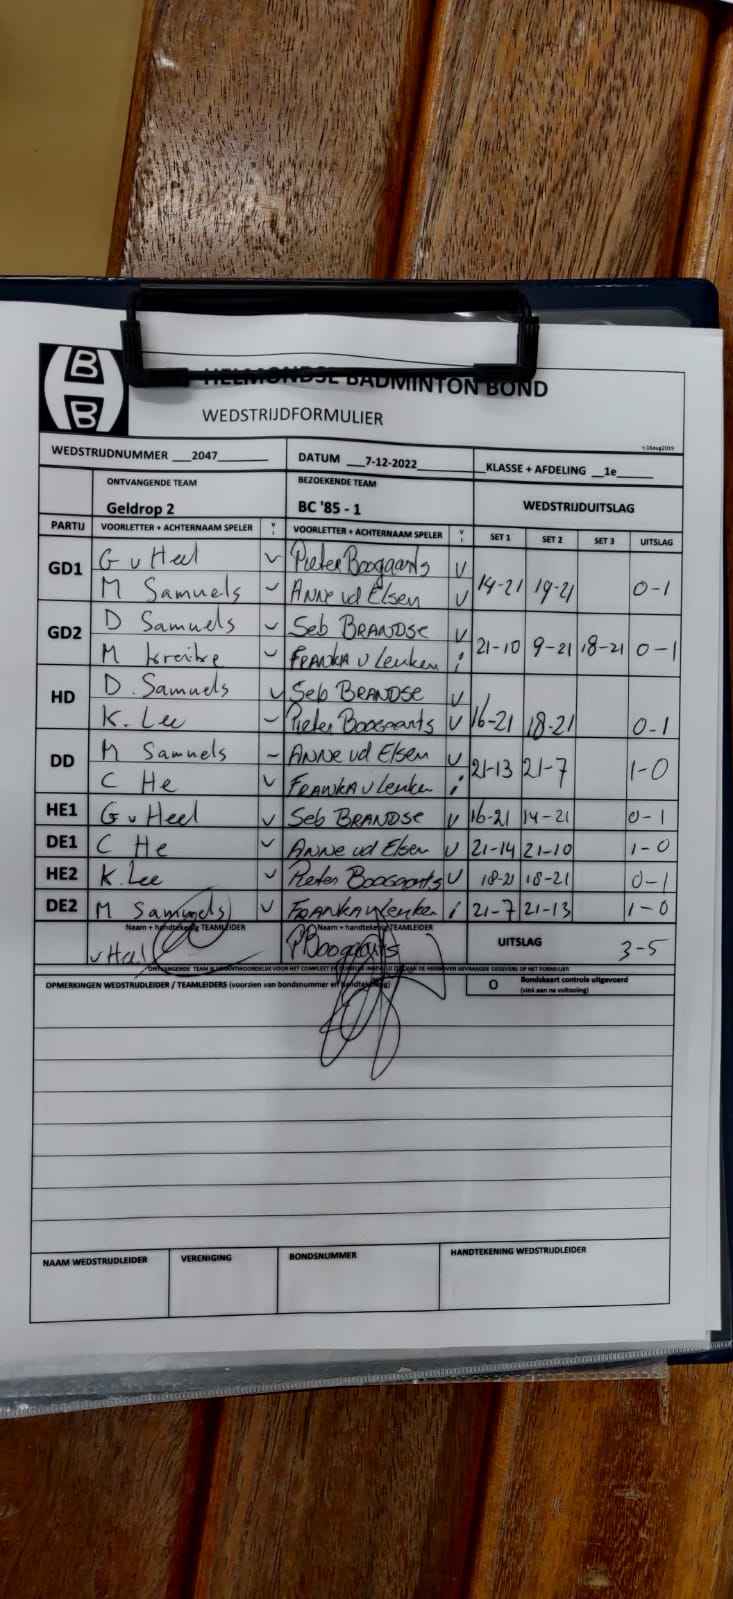 HELMONDSE BADMINTON BOND
WEDSTRIJDFORMULIER
WEDSTRIJDNUMMER ___2047________ DATUM ___7-12-2022__________ KLASSE + AFDELING __1e_____
ONTVANGENDE TEAM BEZOEKENDE TEAM
Geldrop 2 BC '85 - 1 WEDSTRIJDUITSLAG
PARTIJ VOORLETTER + ACHTERNAAM SPELER VOORLETTER + ACHTERNAAM SPELER SET 1 SET 2 SET 3 UITSLAG
GD1 G v Heel v Pieter Boogaarts v 14-21 19-21 0-1
M Samuels v ANNE vd Elsen v
GD2 D Samuels v Seb BRANDSE v 21-10 9-21 18-21 0-1
M v FRANKA v Leuken i
HD D. Samuels v Seb BRANDSE v 16-21 18-21 0-1
K. Lee v Pieter Boogaarts v
DD M Samuels v ANNE vd Elsen v 21-13 21-7 1-0
C He v FRANKA v Leuken i
HE1 G v Heel v Seb BRANDSE v 16-21 14-21 0-1
DE1 C He v ANNE vd Elsen v 21-14 21-10 1-0
HE2 K. Lee v Pieter Boogaarts v 18-21 18-21 0-1
DE2 M Samuels v FRANKA v Leuken i 21-7 21-13 1-0
Naam + handtekening TEAMLEIDER Naam + handtekening TEAMLEIDER
v Heel P Boogaarts UITSLAG 3-5
OPMERKINGEN WEDSTRIJDLEIDER / TEAMLEIDERS (voorzien van bondsnummer en handtekening) O Bondskaart controle uitgevoerd
(vink aan na voltooiing)
NAAM WEDSTRIJDLEIDER VERENIGING BONDSNUMMER HANDTEKENING WEDSTRIJDLEIDER